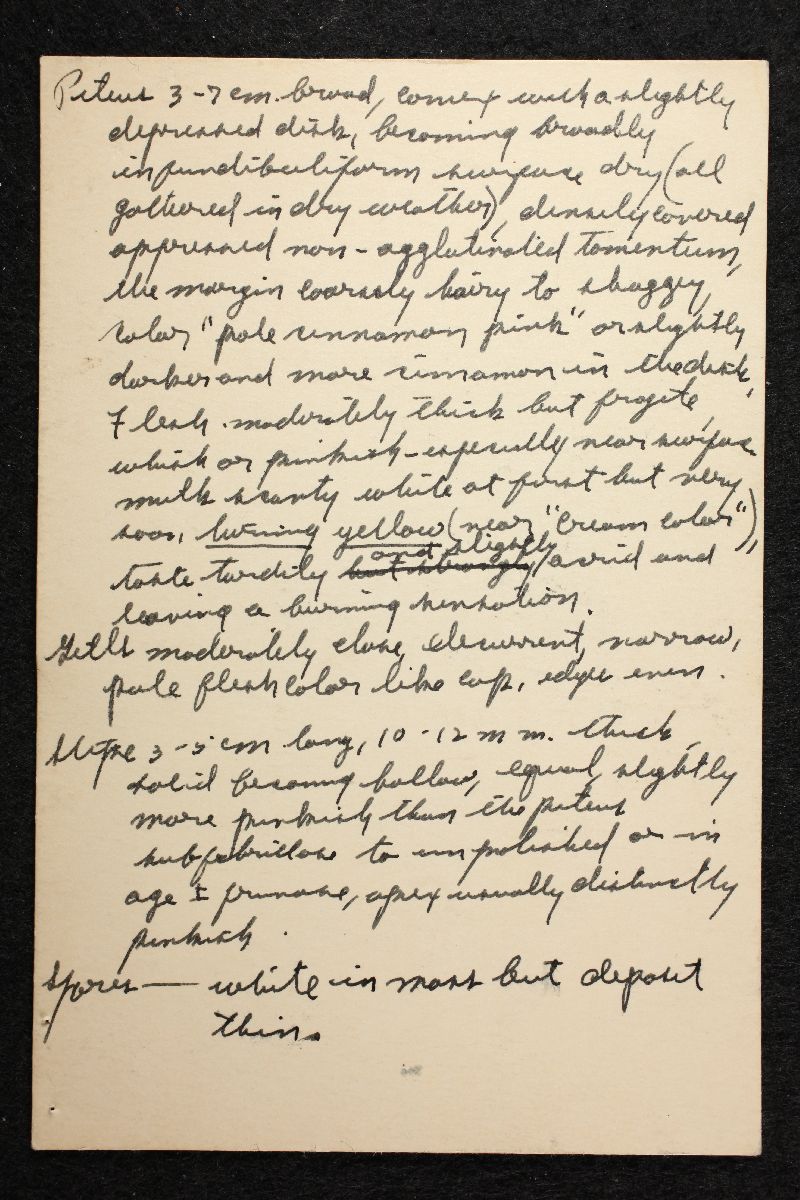 Pileus 3-7 cm. broad, convex with a slightly
depressed disk, becoming broadly
infundibuliform surface dry (all
gathered in dry weather), densely covered
appressed non-agglutinated tomentum,
the margin coarsely hairy to shaggy,
color "pale cinnamon pink" or slightly
darker and more cinnamon in the disk,
Flesh moderately thick but fragile,
whish or pinkish - especially near surface
milk scanty white at first but very
soon, turning yellow (near "cream color"),
taste tardily but strongly and slightly acrid and
leaving a burning sensation.
Gills moderately close, decurrent, narrow,
pale flesh color like cap, edges even.
Stipe 3-5 cm long, 10-12 mm. thick,
solid becoming hollow, equal, slightly
more pinkish than the pileus
subfibrillose to unpolished or in
age ± pruinose, apex usually distinctly
pinkish.
Spores — white in mass but deposit
thin.